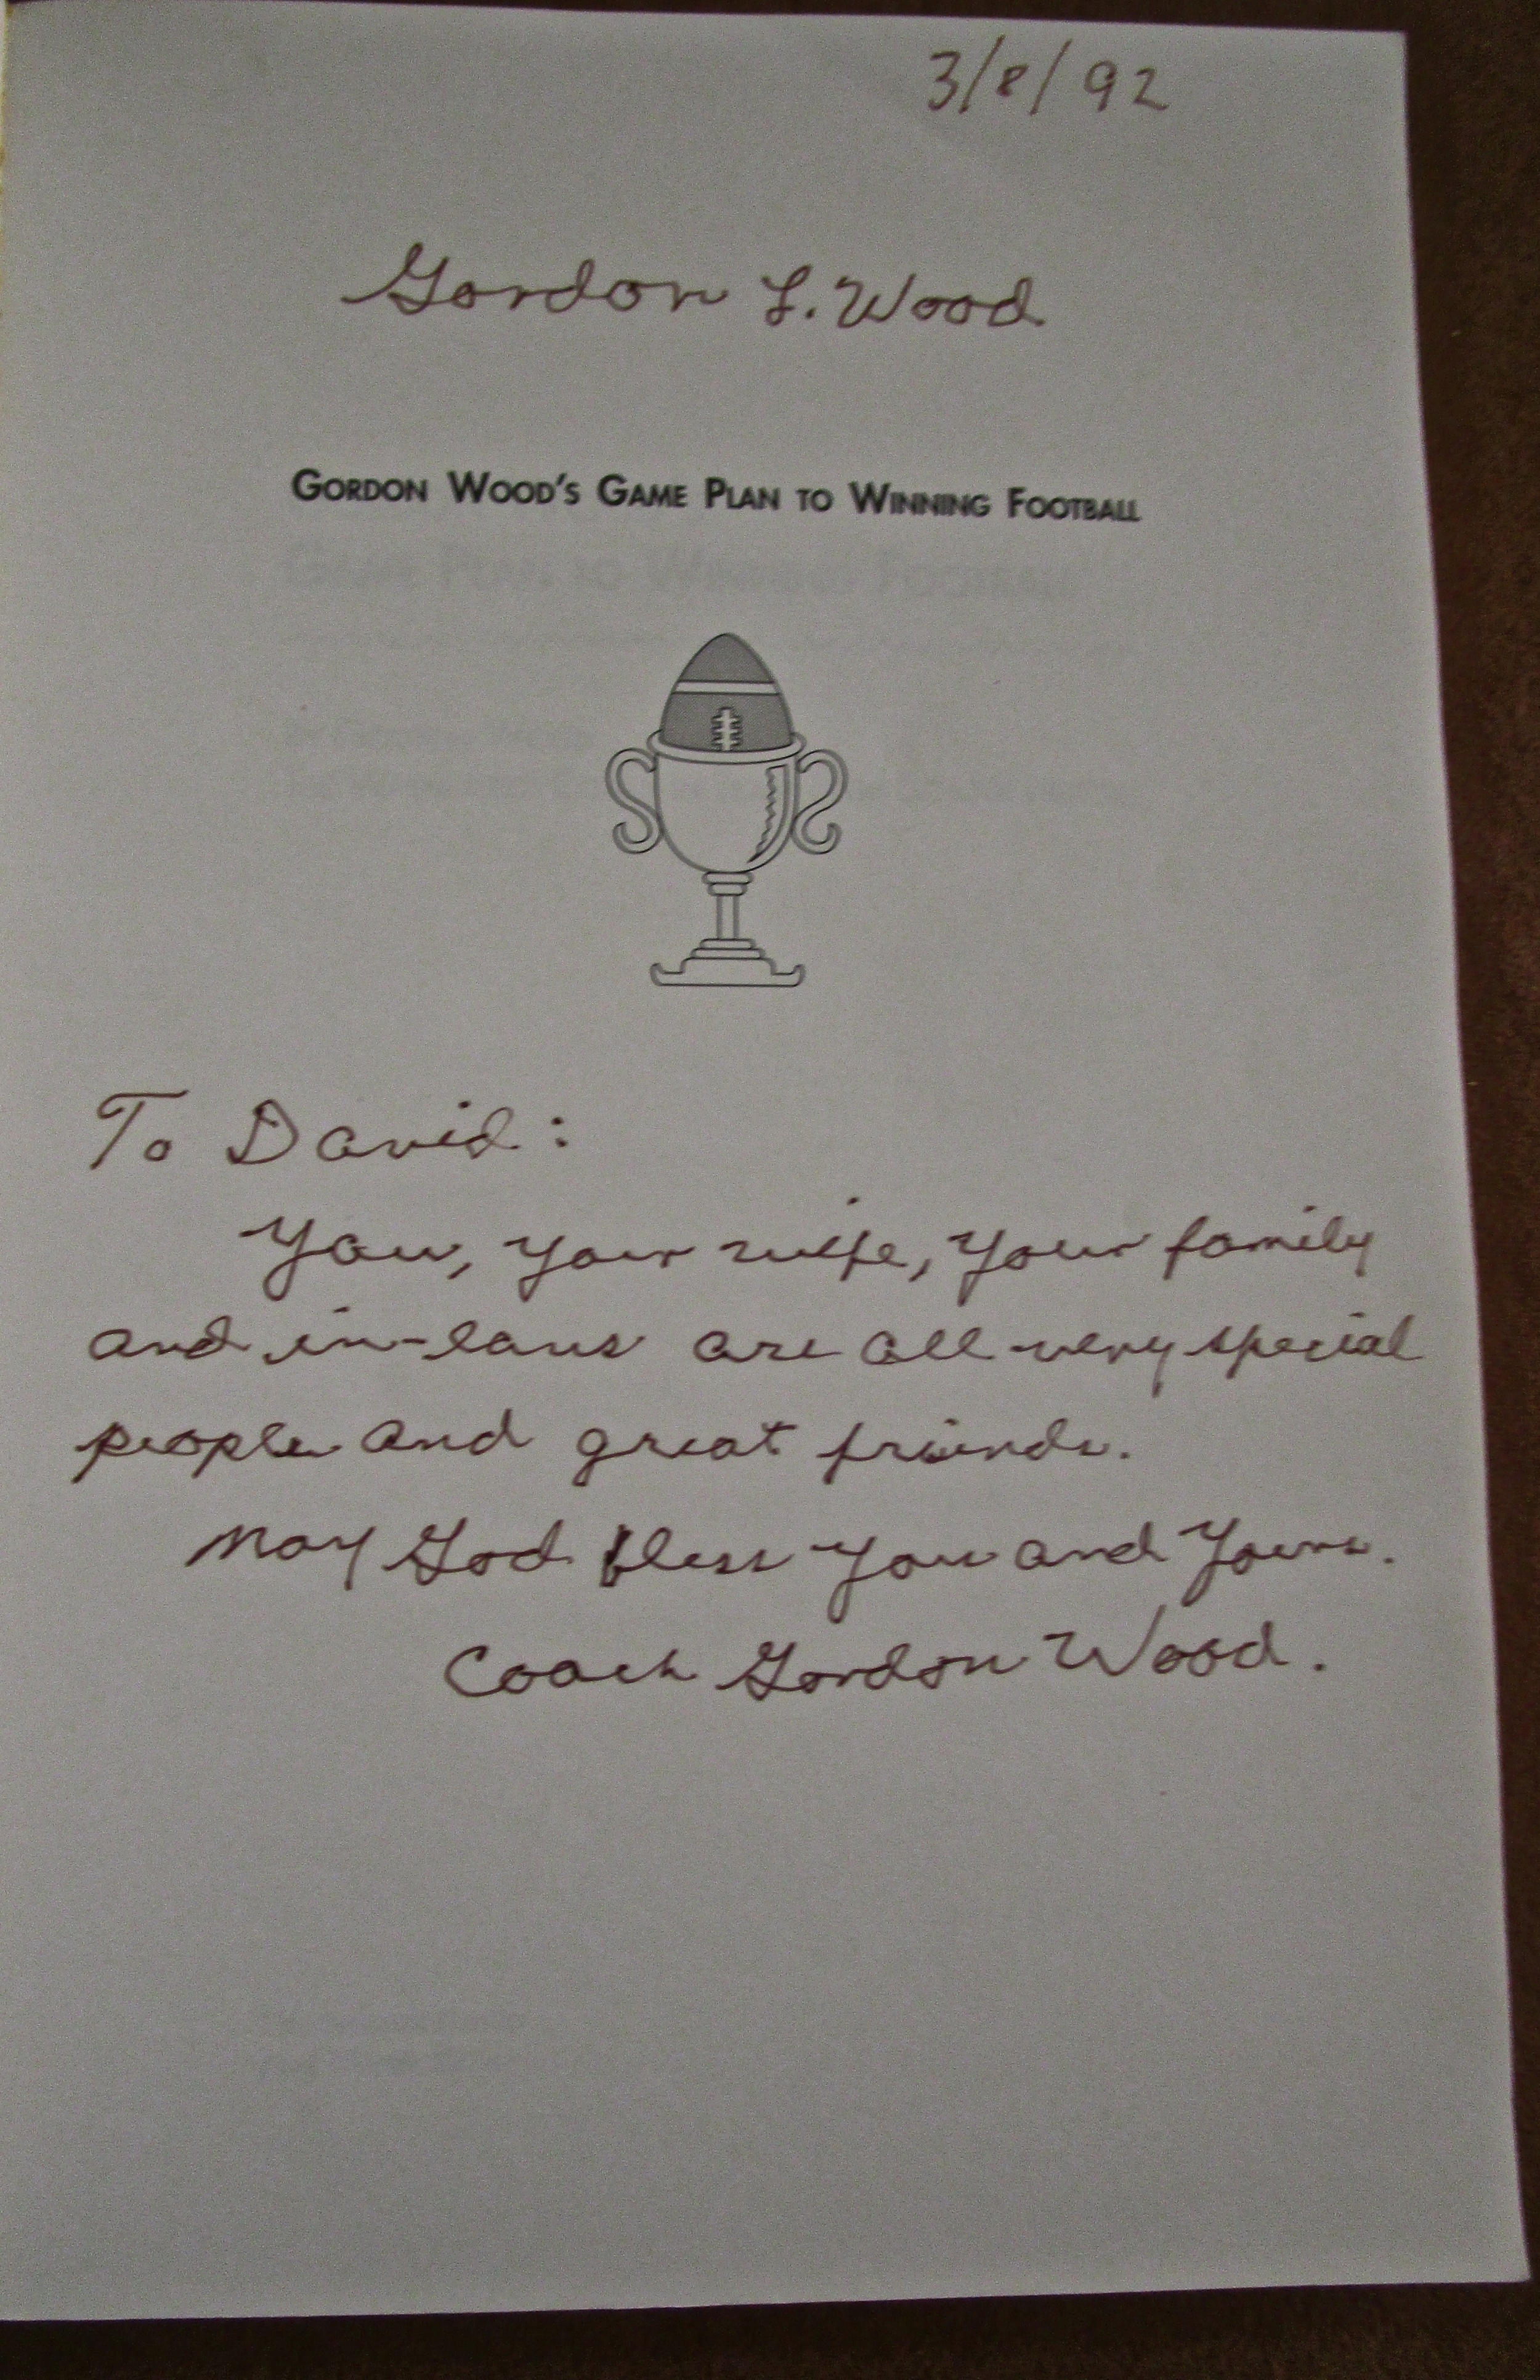 3/8/92
Gordon L. Wood
GORDON WOOD'S GAME PLAN TO WINNING FOOTBALL
To David:
You, your wife, your family
and in-laws are all very special
people and great friends.
May God bless you and yours.
Coach Gordon Wood.